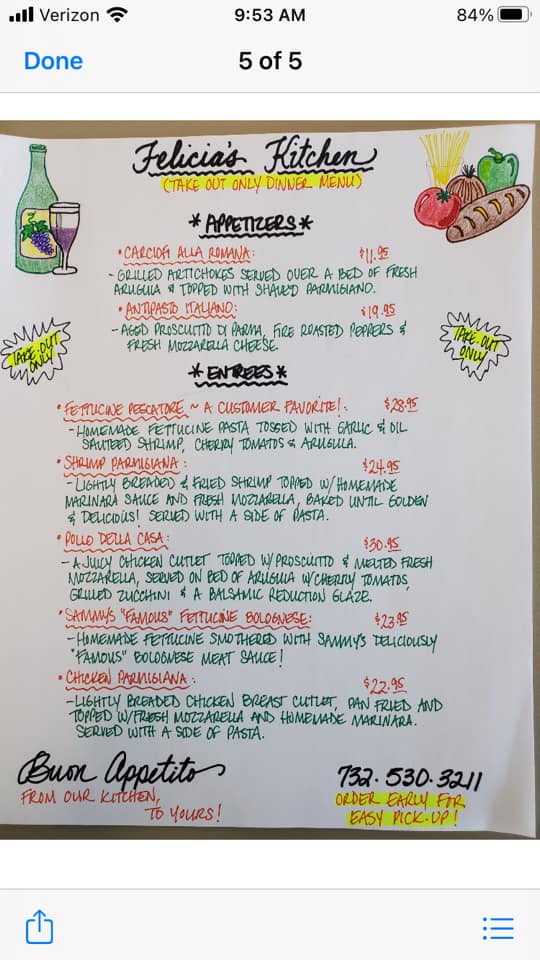 Verizon 9:53 AM 84%
Done 5 of 5
Felicia's Kitchen
(TAKE OUT ONLY DINNER MENU)
* APPETIZERS *
• CARCIOFI ALLA ROMANA: $11.95
- GRILLED ARTICHOKES SERVED OVER A BED OF FRESH
ARUGULA & TOPPED WITH SHAVED PARMIGIANO.
• ANTIPASTO ITALIANO: $19.95
- AGED PROSCIUTTO DI PARMA, FIRE ROASTED PEPPERS &
FRESH MOZZARELLA CHEESE.
TAKE-OUT
ONLY
TAKE-OUT
ONLY
* ENTREES *
• FETTUCINE PESCATORE ~ A CUSTOMER FAVORITE!: $28.95
- HOMEMADE FETTUCINE PASTA TOSSED WITH GARLIC & OIL
SAUTEED SHRIMP, CHERRY TOMATOS & ARUGULA.
• SHRIMP PARMIGIANA: $24.95
- LIGHTLY BREADED & FRIED SHRIMP TOPPED W/HOMEMADE
MARINARA SAUCE AND FRESH MOZZARELLA, BAKED UNTIL GOLDEN
& DELICIOUS! SERVED WITH A SIDE OF PASTA.
• POLLO DELLA CASA: $30.95
- A JUICY CHICKEN CUTLET TOPPED W/PROSCIUTTO & MELTED FRESH
MOZZARELLA, SERVED ON BED OF ARUGULA W/CHERRY TOMATOS,
GRILLED ZUCCHINI & A BALSAMIC REDUCTION GLAZE.
• SAMMY'S "FAMOUS" FETTUCINE BOLOGNESE: $23.95
- HOMEMADE FETTUCINE SMOTHERED WITH SAMMY'S DELICIOUSLY
"FAMOUS" BOLOGNESE MEAT SAUCE!
• CHICKEN PARMIGIANA: $22.95
- LIGHTLY BREADED CHICKEN BREAST CUTLET, PAN FRIED AND
TOPPED W/FRESH MOZZARELLA AND HOMEMADE MARINARA.
SERVED WITH A SIDE OF PASTA.
Buon Appetito
FROM OUR KITCHEN,
TO YOURS!
732.530.3211
ORDER EARLY FOR
EASY PICK-UP!